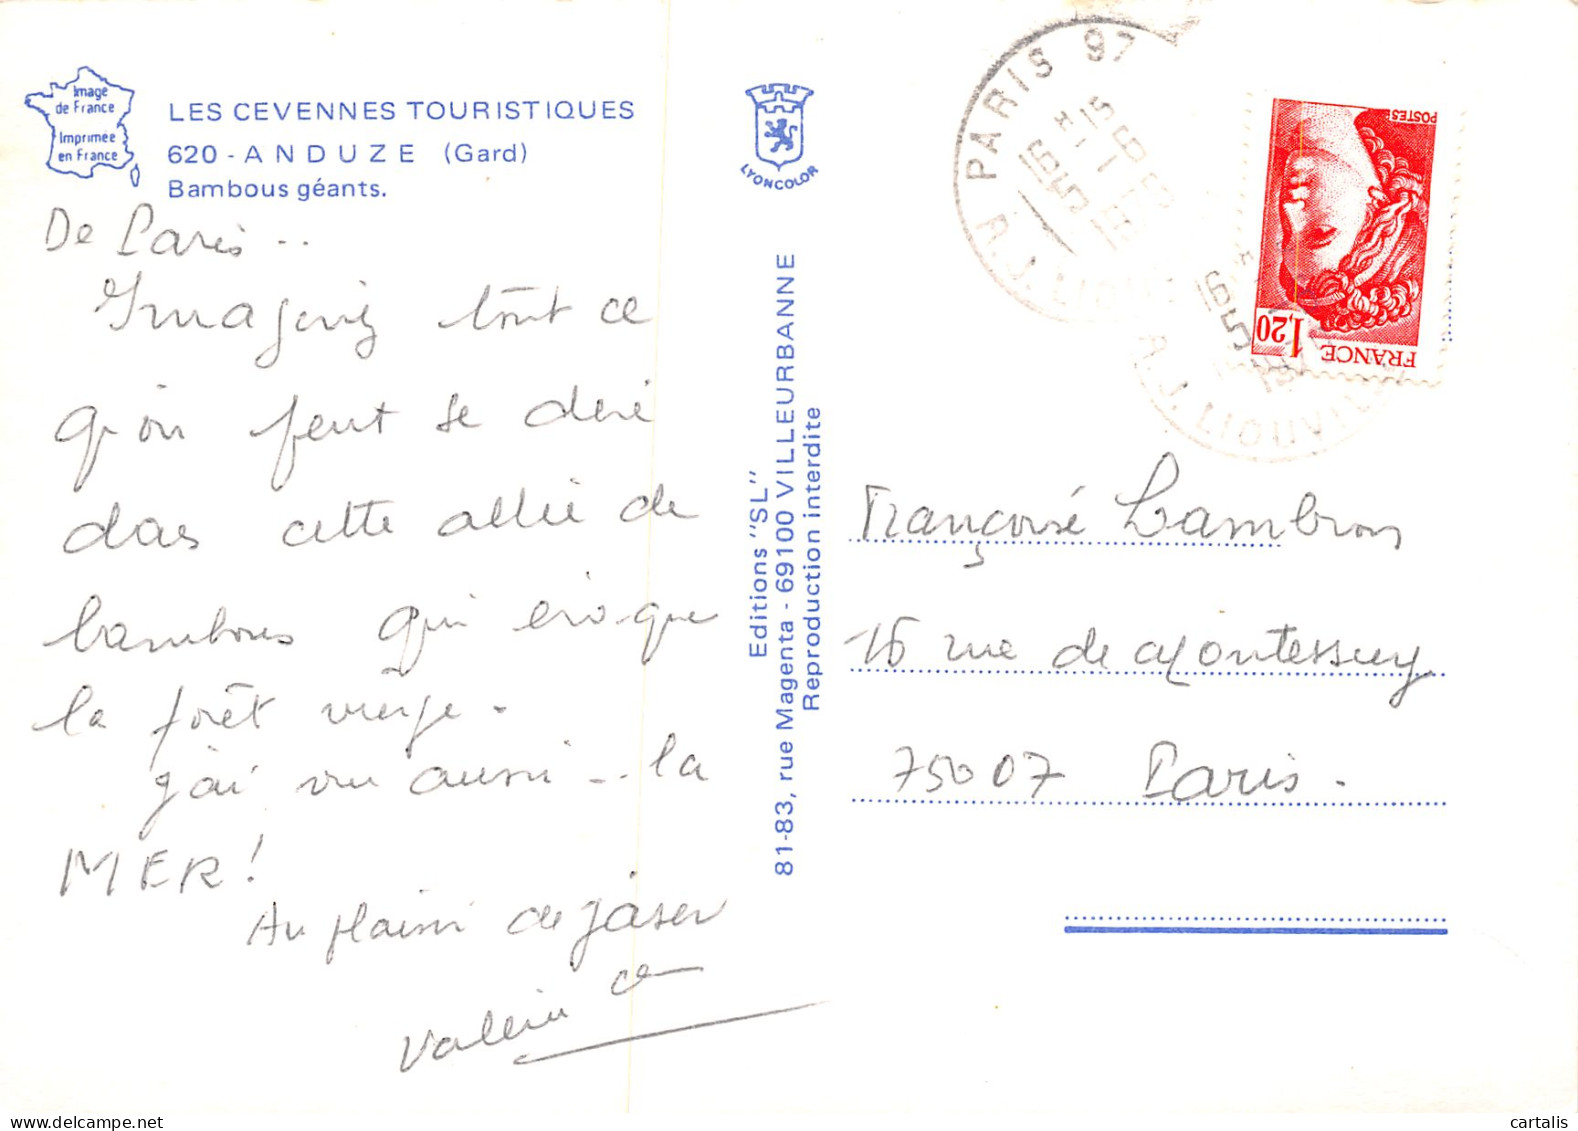 Image
de France
Imprimée
en France
LES CEVENNES TOURISTIQUES
620 - ANDUZE (Gard)
Bambous géants.
De Paris ..
Imaginez tout ce
qu'on peut se dire
dans cette allée de
bambous qui évoque
la forêt vierge.
J'ai vu aussi... la
MER !
Au plaisir de jaser
Valérie
LYONCOLOR
Editions "SL"
81-83, rue Magenta - 69100 VILLEURBANNE
Reproduction interdite
PARIS 97
R. J. LIOUVILLE
16 H 15
POSTES
1,20
FRANCE
Françoise Lambron
16 rue de Montessuy
75007 Paris.
cartalis.com